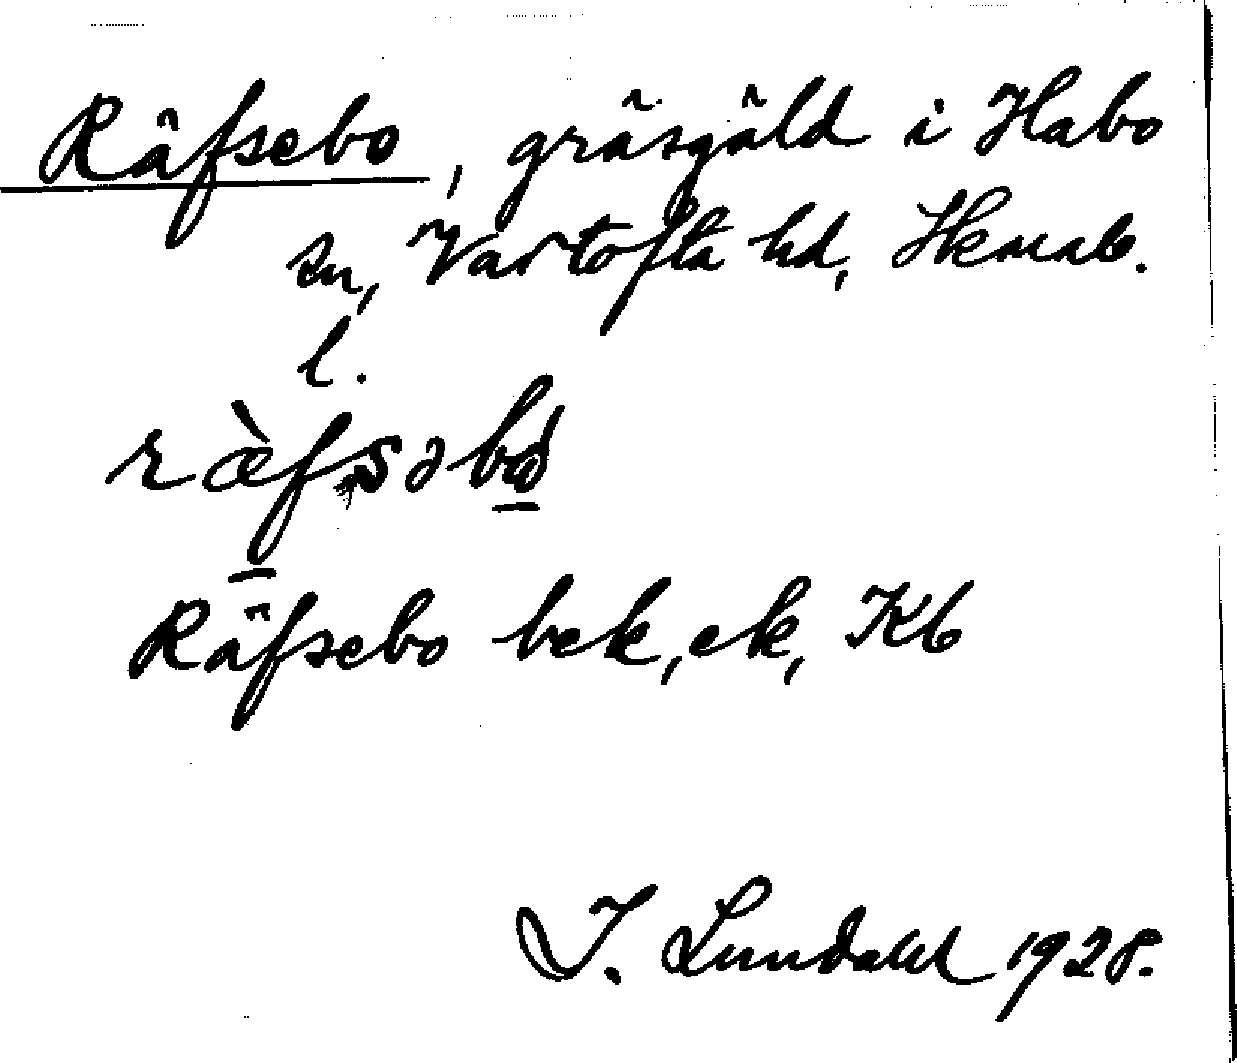 Räfsebo, gräsgäld i Habo
sn, Vartofta hd, Skarab.
l.
ræ̀fsəbo
Räfsebo bek, ek, Kb
I. Lundahl 1928.